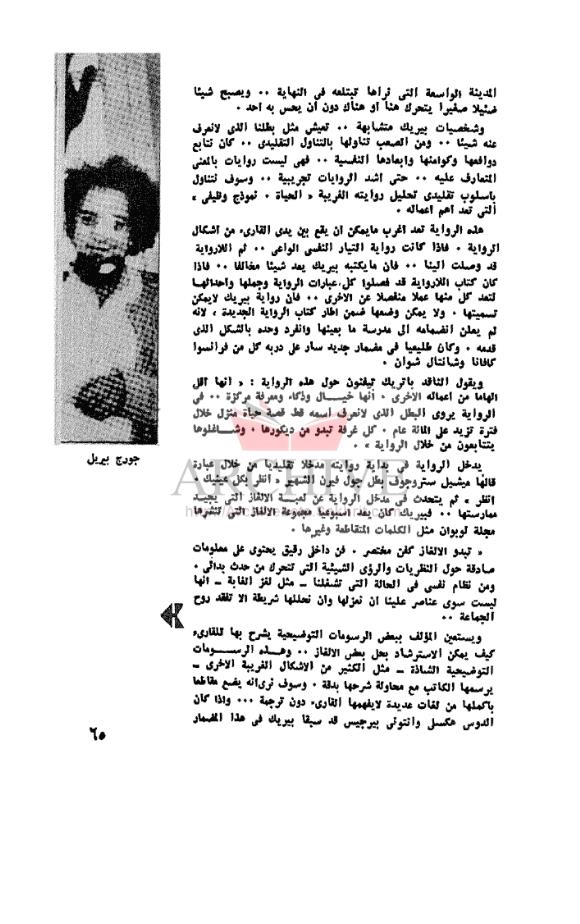 المدينة الواسعة التى نراها تبتلعه فى النهاية ٠٠ ويصبح شيئا
ضئيلا صغيرا يتحرك هنا او هناك دون أن يحس به احد ٠
وشخصيات بيريك متشابهة ٠٠ تعيش مثل بطلنا الذى لانعرف
عنه شيئا ٠٠ ومن الصعب تناولها بالتناول التقليدى ٠٠ كان نتابع
دوافعها وكوامنها وابعادها النفسية ٠٠ فهى ليست روايات بالمعنى
المتعارف عليه ٠٠ حتى أشد الروايات تجريبية ٠٠ وسوف نتناول
باسلوب تقليدى تحليل روايته الغريبة « الحياة ٠ نموذج وظيفى »
التى تعد أهم اعماله ٠
هذه الرواية تعد اغرب مايمكن ان يقع بين يدى القارىء من اشكال
الرواية ٠ فاذا كانت رواية التيار النفسى الواعى ٠٠ ثم اللارواية
قد وصلت الينا ٠٠ فان مايكتبه بيريك يعد شيئا مخالفا ٠٠ فاذا
كان كتاب اللارواية قد فصلوا كل عبارات الرواية وجملها واحداثها
لتعد كل منها عملا منفصلا عن الاخرى ٠٠ فان رواية بيريك لايمكن
تسميتها ٠ ولا يمكن وضعها ضمن اطار كتاب الرواية الجديدة ، لانه
لم يعلن انضمامه الى مدرسة ما بعينها وانفرد وحده بالشكل الذى
قدمه ٠ وكان طليعيا فى مضمار جديد سار على دربه كل من فرانسوا
كافانا وشانتال شوان ٠
ويقول الناقد باتريك تيفنون حول هذه الرواية : « انها أقل
الهاما من اعماله الاخرى ٠ أنها خيـــال وذكاء ومعرفة مركزة ٠٠ فى
الرواية يروى البطل الذى لانعرف أسمه قط قصة حياة منزل خلال
فترة تزيد على المائة عام ٠ كل غرفة تبدو من ديكورها ٠ وشـــاغلوها
يتتابعون من خلال الرواية » ٠
يدخل الرواية فى بداية روايته مدخلا تقليديا من خلال عبارة
قالها ميشيل ستروجوف بطل جول فيرن الشهير « انظر بكل عينيك ٠
انظر » ثم يتحدث فى مدخل الرواية عن لعبـــة الالغاز التى يجيــد
ممارستها ٠٠ فبيريك كان يعد اسبوعيا مجموعة الالغاز التى تنشرها
مجلة لوبوان مثل الكلمات المتقاطعة وغيرها ٠
« تبدو الالغاز كفن مختصر ٠ فن داخلى رقيق يحتوى على معلومات
صادقة حول النظريات والرؤى الشيئية التى تتحرك من حدث بدائى ٠
ومن نظام نفسى فى الحالة التى تشغلنا ــ مثل لغز الغابة ــ انها
ليست سوى عناصر علينا ان نعزلها وان نحللها شريطة الا تفقد روح
الجماعة ٠٠
ويستعين المؤلف ببعض الرسومات التوضيحية يشرح بها للقارىء
كيف يمكن الاسترشاد بحل بعض الالغاز ٠٠ وهـــذه الرســـومات
التوضيحية الشاذة ــ مثل الكثير من الاشكال الغريبة الاخرى ــ
يرسمها الكاتب مع محاولة شرحها بدقة ٠ وسوف نرى انه يضع مقاطعا
باكملها من لغات عديدة لايفهمها القارىء دون ترجمة ٠٠٠ واذا كان
الدوس هكسلى وانتونى بيرجيس قد سبقا بيريك فى هذا المضمار
جورج بيريل
ARCHIVE
٦٥